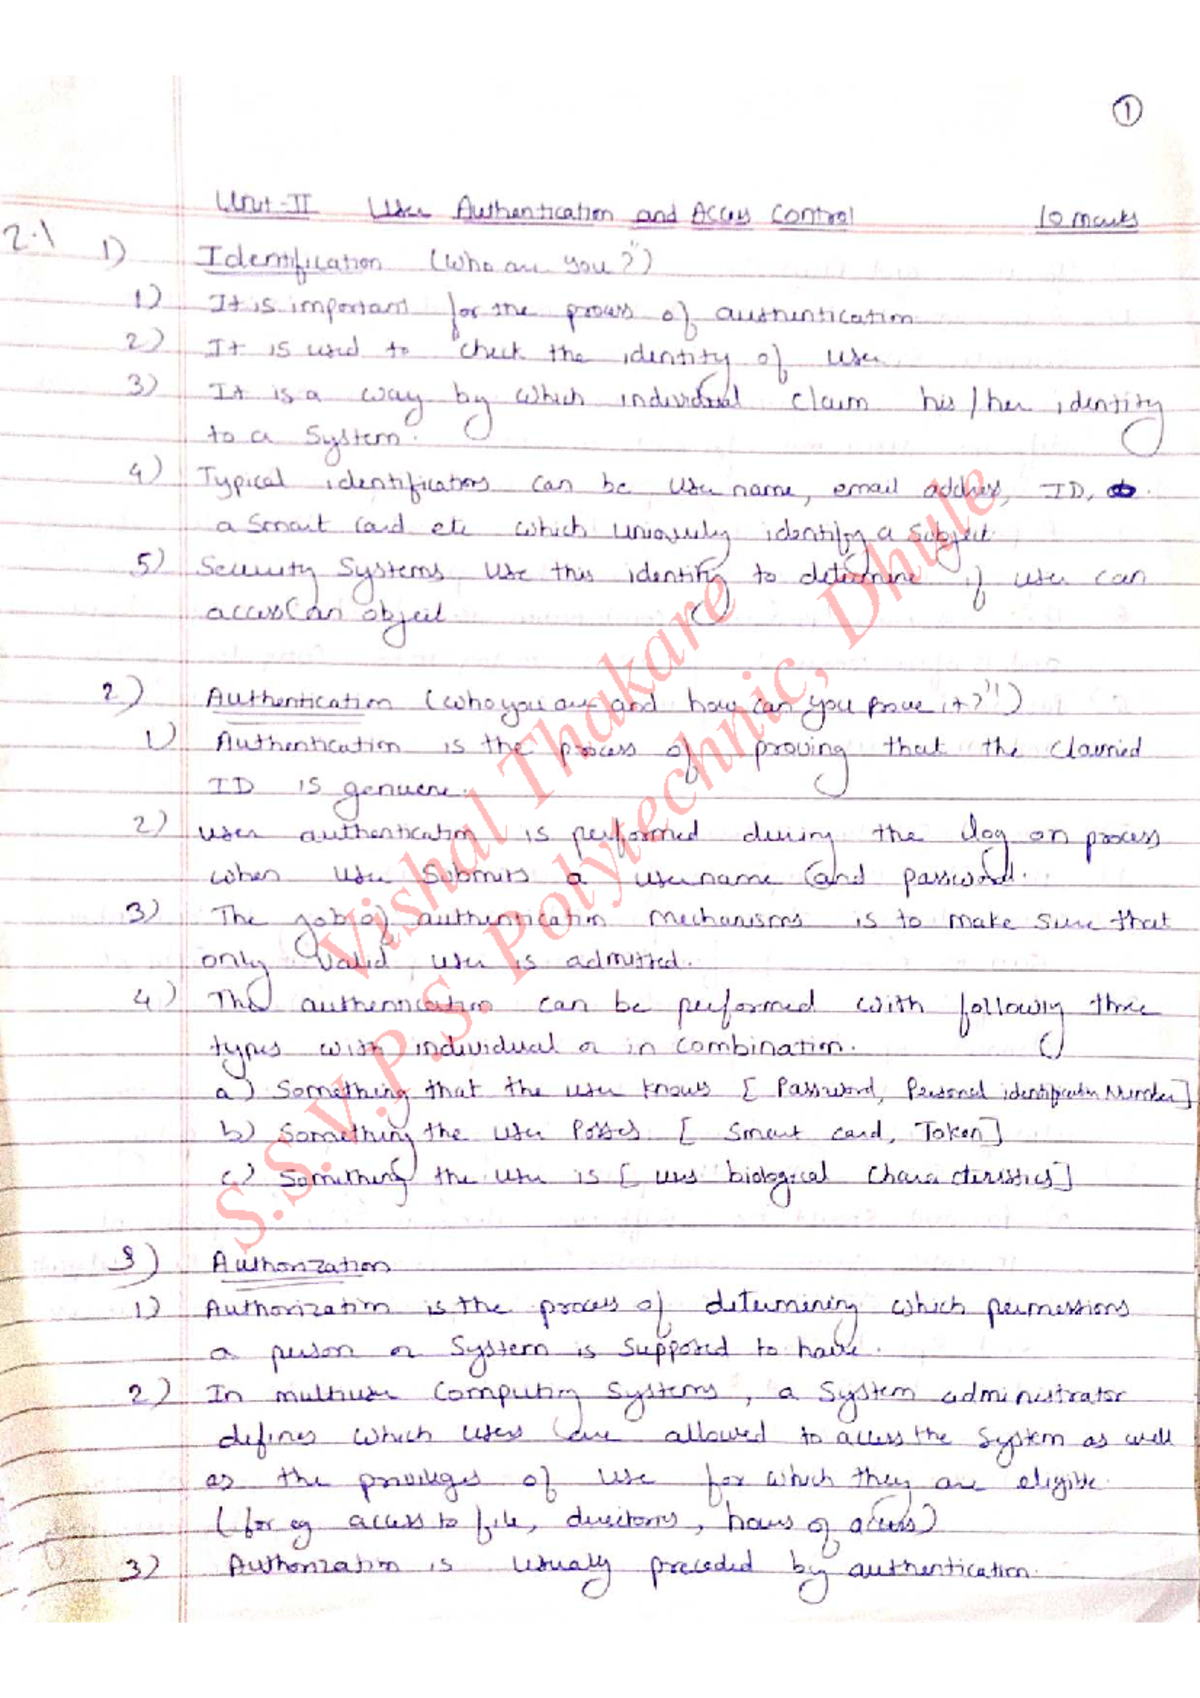 1
Unit-II User Authentication and Access Control 10 marks
2.1 1) Identification (Who are you?")
1) It is important for the process of authentication
2) It is used to check the identity of user
3) It is a way by which individual claim his/her identity
to a System.
4) Typical identifications can be user name, email address, ID,
a Smart card etc which uniquely identify a Subject.
5) Security Systems use this identity to determine if user can
access an object
2) Authentication (who you are and how can you prove it?")
1) Authentication is the process of proving that the claimed
ID is genuine.
2) user authentication is performed during the log on process
when user Submits a username and password.
3) The job of authentication mechanisms is to make sure that
only valid user is admitted.
4) The authentication can be performed with following three
types with individual or in combination.
a) Something that the user knows [ Password, Personal identification Number]
b) Something the user Posses [ Smart card, Token]
c) Something the user is [ biological characteristics]
3) Authorization
1) Authorization is the process of determining which permissions
a person or System is supposed to have.
2) In multiuser Computing Systems, a System administrator
defines which users are allowed to access the System as well
as the privileges of use for which they are eligible.
(for eg access to file, directories, hours of access)
3) Authorization is usually preceded by authentication.
Vishal Thakare
S.S.V.P.S. Polytechnic, Dhule